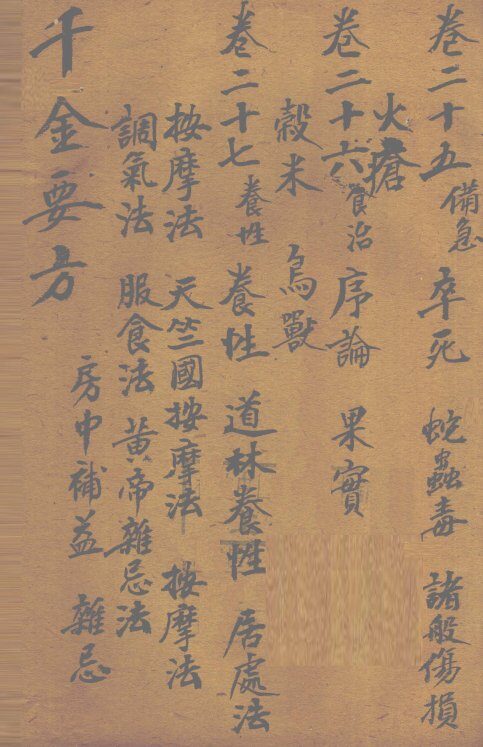 卷二十五 備急 卒死 蛇蟲毒 諸般傷損
火瘡
卷二十六 食治 序論 果實
穀米 鳥獸
卷二十七 養性 養性 道林養性 居處法
按摩法 天竺國按摩法 按摩法
調氣法 服食法 黃帝雜忌法
房中補益 雜忌
千金要方